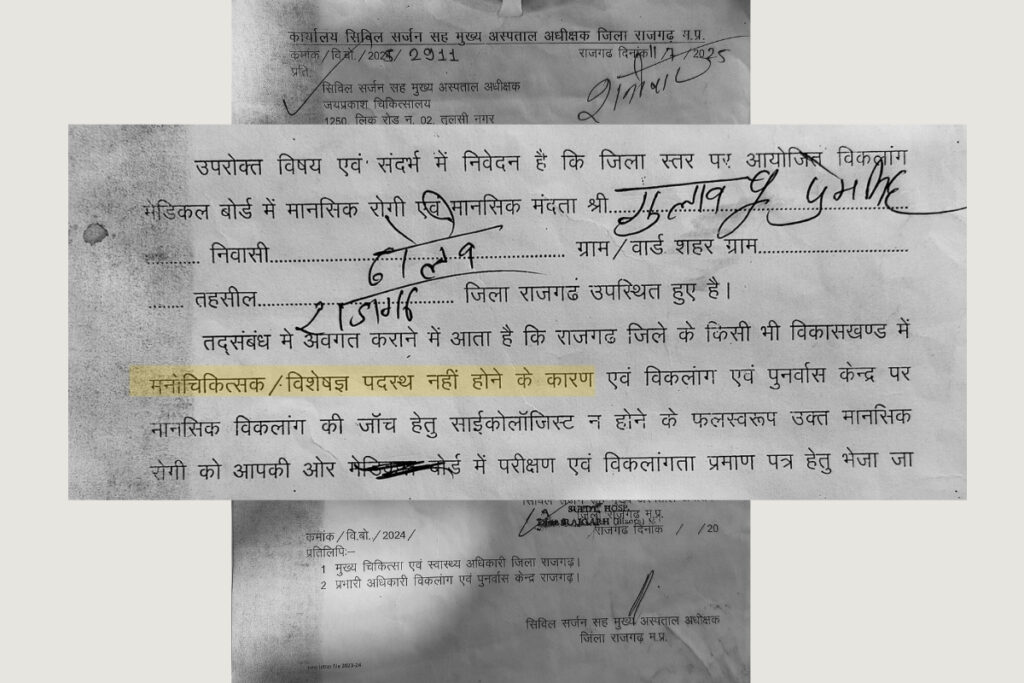 कार्यालय सिविल सर्जन सह मुख्य अस्पताल अधीक्षक जिला राजगढ़ म.प्र.
कमांक/वि.बो./2025/2911 राजगढ दिनांक 11/7/2025
प्रति,
सिविल सर्जन सह मुख्य अस्पताल अधीक्षक
जयप्रकाश चिकित्सालय
1250, लिंक रोड न. 02, तुलसी नगर
उपरोक्त विषय एवं संदर्भ में निवेदन है कि जिला स्तर पर आयोजित विकलांग
मेडिकल बोर्ड में मानसिक रोगी एवं मानसिक मंदता श्री गुलाब
निवासी ग्राम/वार्ड शहर ग्राम
तहसील राजगढ़ जिला राजगढं उपस्थित हुए है।
तद्संबंध मे अवगत कराने में आता है कि राजगढ जिले के किसी भी विकासखण्ड में
मनोचिकित्सक/विशेषज्ञ पदस्थ नहीं होने के कारण एवं विकलांग एवं पुनर्वास केन्द्र पर
मानसिक विकलांग की जॉच हेतु साईकोलॉजिस्ट न होने के फलस्वरूप उक्त मानसिक
रोगी को आपकी ओर बोर्ड में परीक्षण एवं विकलांगता प्रमाण पत्र हेतु भेजा जा
जिला राजगढ़ म.प्र.
कमांक/वि.बो./2024/ राजगढ दिनांक / /20
प्रतिलिपिः-
1 मुख्य चिकित्सा एवं स्वास्थ्य अधिकारी जिला राजगढ़।
2 प्रभारी अधिकारी विकलांग एवं पुनर्वास केन्द्र राजगढ़।
सिविल सर्जन सह मुख्य अस्पताल अधीक्षक
जिला राजगढ़ म.प्र.